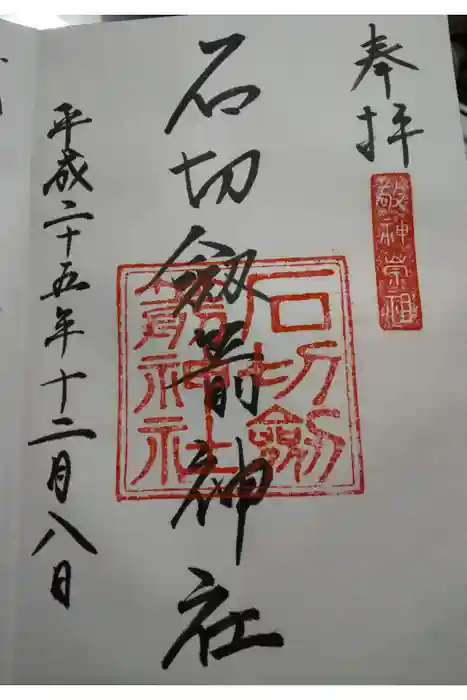 奉拝
敬神崇祖
石切劔箭神社
石切劔
箭神社
平成二十五年十二月八日